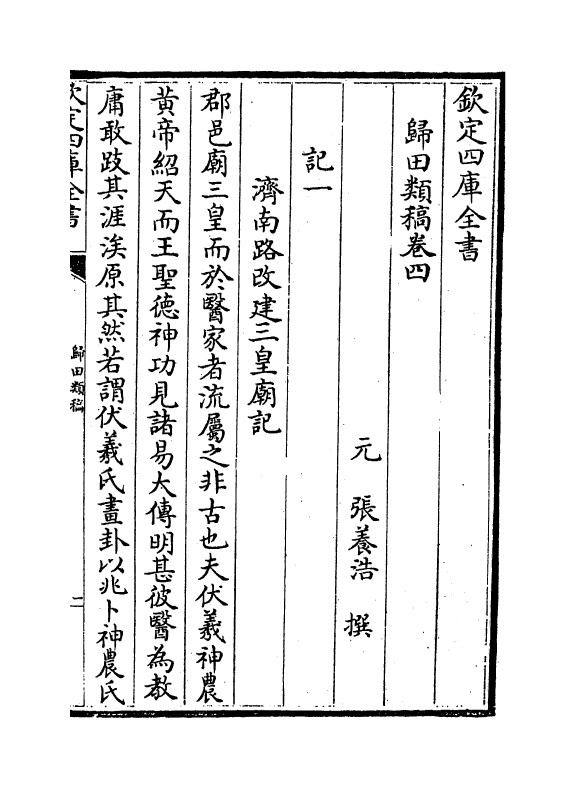 欽定四庫全書
歸田類稿卷四
元　張養浩　撰
記一
濟南路改建三皇廟記
郡邑廟三皇而於醫家者流屬之非古也夫伏羲神農
黄帝紹天而王聖德神功見諸易大傳明甚彼醫為教
庸敢跂其涯涘原其然若謂伏羲氏畫卦以兆卜神農氏
欽定四庫全書
歸田類稿